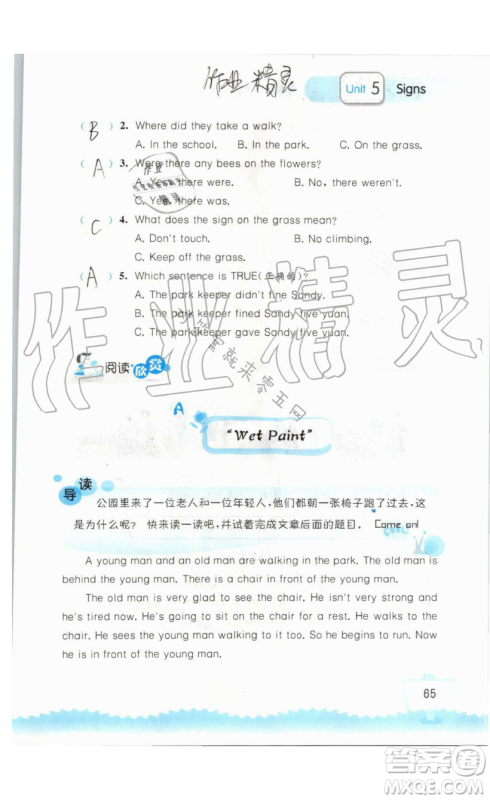 作业精灵
Unit 5 Signs
( B ) 2. Where did they take a walk?
A. In the school. B. In the park. C. On the grass.
( A ) 3. Were there any bees on the flowers?
A. Yes, there were. B. No, there weren't.
C. Yes, there was.
( C ) 4. What does the sign on the grass mean?
A. Don't touch. B. No climbing.
C. Keep off the grass.
( A ) 5. Which sentence is TRUE(正确的)?
A. The park keeper didn't fine Sandy.
B. The park keeper fined Sandy five yuan.
C. The park keeper gave Sandy five yuan.
作业精灵
就来零五网
阅读欣赏
A
"Wet Paint"
导读
公园里来了一位老人和一位年轻人，他们都朝一张椅子跑了过去，这
是为什么呢？ 快来读一读吧，并试着完成文章后面的题目。 Come on!
A young man and an old man are walking in the park. The old man is
behind the young man. There is a chair in front of the young man.
The old man is very glad to see the chair. He's old and
he's tired now. He's going to sit on the chair for a rest. He walks to the
chair. He sees the young man walking to it too. So he begins to run. Now
he is in front of the young man.
65
答案圈